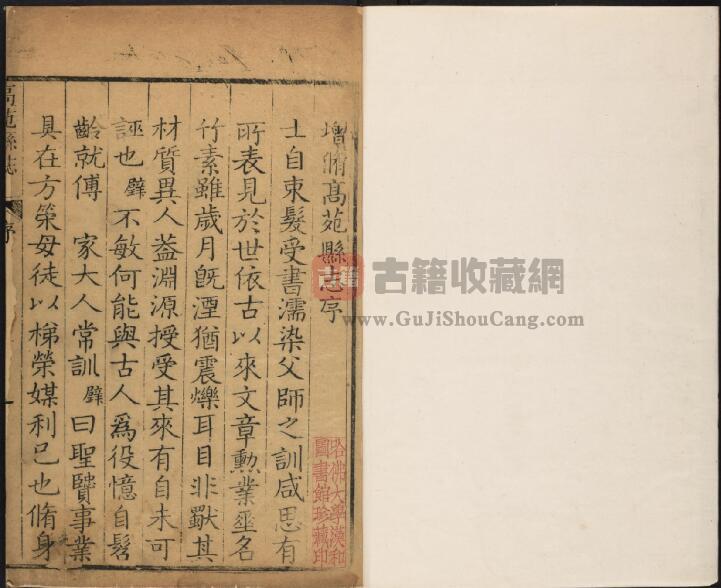 增脩髙苑縣志序
士自束髮受書濡染父師之訓咸思有
所表見於世依古以來文章勲業垂名
竹素雖歲月既湮猶震爍耳目非獸其
材質異人葢淵源授受其來有自未可
誣也 璧不敏何能與古人爲役憶自髫
齡就傅 家大人常訓 璧曰聖賢事業
具在方策毋徒以梯榮媒利已也脩身
高苑縣志
序
古籍
古籍收藏網
www.GuJiShouCang.com
哈佛大學漢和
圖書館珍藏印